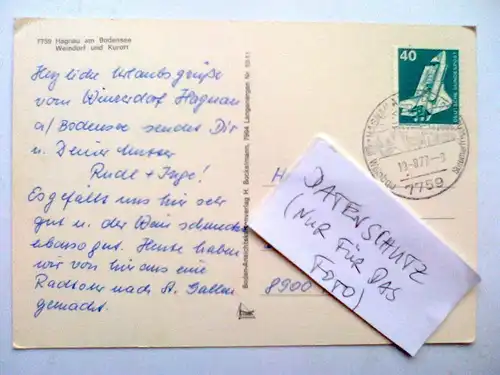 7759 Hagnau am Bodensee
Weindorf und Kurort
Herzliche Urlaubsgrüße
vom Winzerdorf Hagnau
a/Bodensee sendet Dir
u. Deiner Mutter
Rudi + Inge!
Es gefällt uns hier sehr
gut u. der Wein schmeckt
ebenso gut. Heute haben
wir von hier aus eine
Radtour nach St. Gallen
gemacht.
Bodan-Ansichtskartenverlag H. Buckelmann, 7994 Langenargen Nr.
40
DEUTSCHE BUNDESPOST
19.-8.77.-
7759
H
8900
DATENSCHUTZ
(NUR FÜR DAS
FOTO)